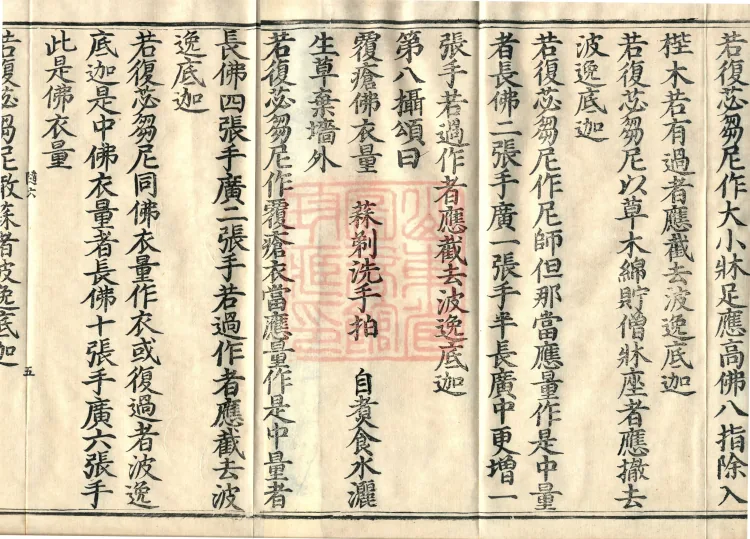 若復苾芻尼作大小牀足應高佛八指除入
梐木若有過者應截去波逸底迦
若復苾芻尼以草木綿貯僧牀座者應撤去
波逸底迦
若復苾芻尼作尼師但那當應量作是中量
者長佛二張手廣一張手半長廣中更增一
張手若過作者應截去波逸底迦
第八攝頌曰
覆瘡佛衣量 蒜剃洗手拍 自煮食水灑
生草棄墻外
若復苾芻尼作覆瘡衣當應量作是中量者
長佛四張手廣二張手若過作者應截去波
逸底迦
若復苾芻尼同佛衣量作衣或復過者波逸
底迦是中佛衣量者長佛十張手廣六張手
此是佛衣量
隨六 五
若復苾芻尼噉蒜者波逸底迦